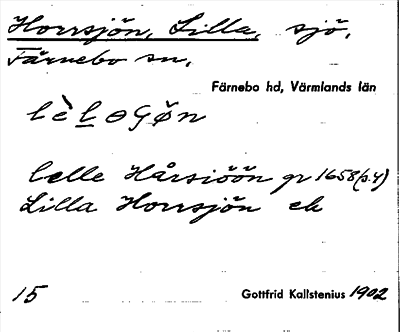 Horrsjön, Lilla, sjö,
Färnebo sn,
Färnebo hd, Värmlands län
lelle Hårsiöön gr 1658 (s.4)
Lilla Horrsjön ek
15 Gottfrid Kallstenius 1902